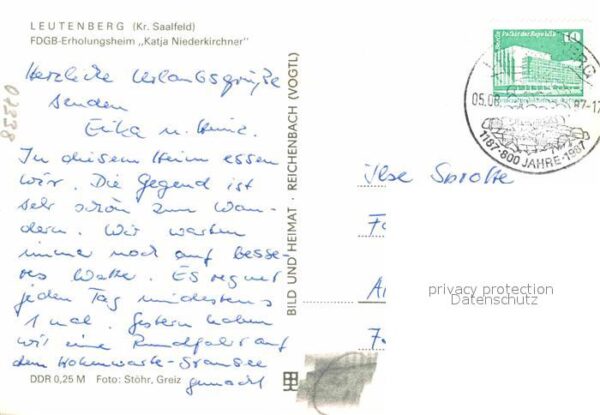 LEUTENBERG (Kr. Saalfeld)
FDGB-Erholungsheim „Katja Niederkirchner"
Herzliche Urlaubsgrüße
senden
Erika u. Heinz.
In diesem Heim essen
wir. Die Gegend ist
sehr schön zum Wan-
dern. Wir warten
immer noch auf besse-
res Wetter. Es regnet
jeden Tag mindestens
1 mal. Gestern haben
wir eine Rundfahrt auf
dem Hohenwarte-Stausee
gemacht
DDR 0,25 M Foto: Stöhr, Greiz
07338
BILD UND HEIMAT · REICHENBACH (VOGTL)
Palast der Republik
10
05.08.
87-17
1187-800 JAHRE-1987
Ilse Sprotte
privacy protection
Datenschutz